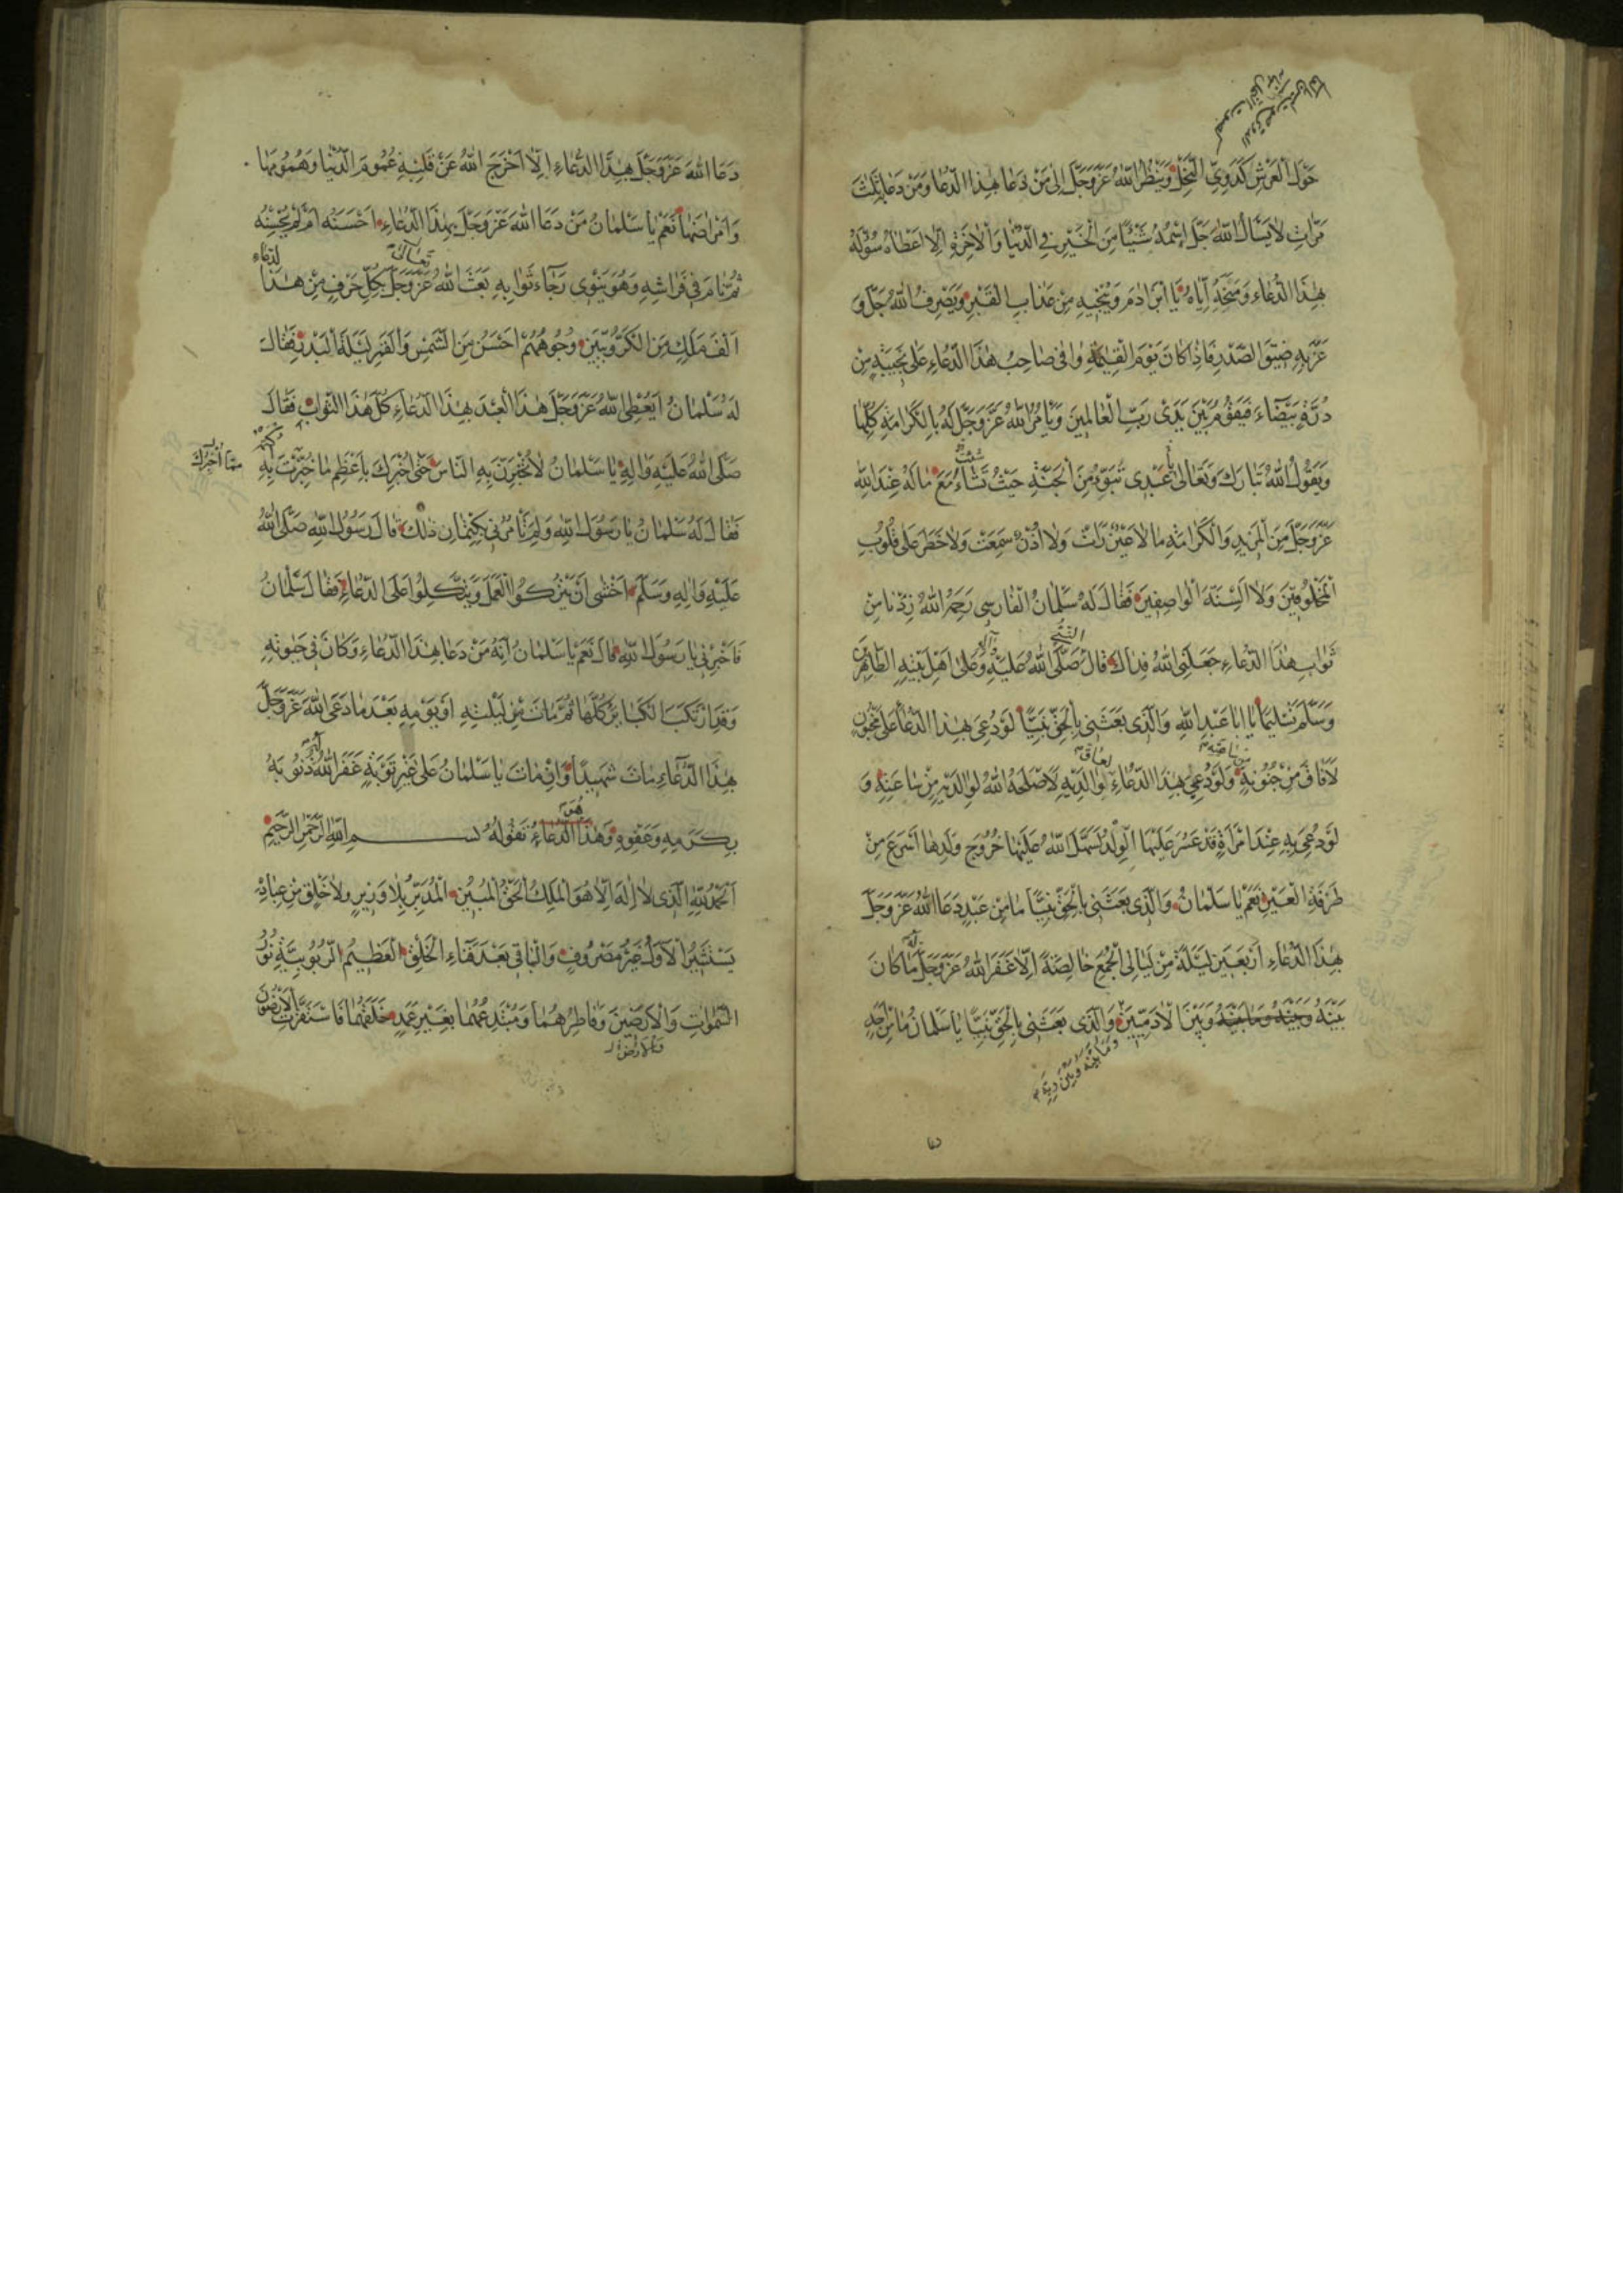 حَوْلَ الْعَرْشِ كَدَوِيِّ النَّحْلِ وَيَنْظُرُ اللّٰهُ عَزَّوَجَلَّ اِلٰى مَنْ دَعَا بِهٰذَا الدُّعَا وَمَنْ دَعَا بِثَلٰثَ
مَرَّاتٍ لَا يَسْاَلُ اللّٰهَ جَلَّ اِسْمُهُ شَيْئًا مِنَ الْخَيْرِ فِي الدُّنْيَا وَالْاٰخِرَةِ اِلَّا اَعْطَاهُ سُؤْلَهُ
بِهٰذَا الدُّعَاءِ وَمَنَحَهُ اِيَّاهُ يَا ابْنَ اٰدَمَ وَيُنْجِيهِ مِنْ عَذَابِ الْقَبْرِ وَيَصْرِفُ اللّٰهُ جَلَّ وَ
عَزَّ بِهِ ضِيْقَ الصَّدْرِ فَاِذَا كَانَ يَوْمَ الْقِيٰمَةِ وَافٰى صَاحِبُ هٰذَا الدُّعَاءِ عَلٰى نَجِيبَةٍ مِنْ
دُرَّةٍ بَيْضَاءَ فَيَقُومُ بَيْنَ يَدَىْ رَبِّ الْعَالَمِينَ وَيَأْمُرُ اللّٰهُ عَزَّوَجَلَّ لَهُ بِالْكَرَامَةِ كُلِّهَا
وَيَقُولُ اللّٰهُ تَبَارَكَ وَتَعَالٰى عَبْدِى تَبَوَّءْ مِنَ الْجَنَّةِ حَيْثُ تَشَاءُ مَعَ مَا لَهُ عِنْدَ اللّٰهِ
شئت
عَزَّوَجَلَّ مِنَ الْمَزِيدِ وَالْكَرَامَةِ مَا لَا عَيْنٌ رَأَتْ وَلَا اُذُنٌ سَمِعَتْ وَلَا خَطَرَ عَلٰى قُلُوبِ
الْمَخْلُوقِينَ وَلَا اَلْسِنَةَ الْوَاصِفِينَ فَقَالَ لَهُ سَلْمَانُ الْفَارِسِى رَحِمَهُ اللّٰهُ زِدْنَا مِنْ
ثَوَابِ هٰذَا الدُّعَاءِ جَعَلَنِى اللّٰهُ فِدَاكَ قَالَ صَلَّى اللّٰهُ عَلَيْهِ وَعَلٰى اَهْلِ بَيْتِهِ الطَّاهِرِينَ
النبي
وَسَلَّمَ تَسْلِيمًا يَا اَبَا عَبْدِ اللّٰهِ وَالَّذِى بَعَثَنِى بِالْحَقِّ نَبِيًّا لَوْ دُعِىَ بِهٰذَا الدُّعَاءِ عَلٰى مَجْنُونٍ
لَاَفَاقَ مِنْ جُنُونِهِ وَلَوْ دُعِىَ بِهٰذَا الدُّعَاءِ لِوَالِدَيْهِ لَاَصْلَحَهُ اللّٰهُ لِوَالِدَيْهِ مِنْ سَاعَتِهِ وَ
لَوْ دُعِىَ بِهِ عِنْدَ امْرَأَةٍ قَدْ عَسُرَ عَلَيْهَا الْوَلَدُ لَسَهَّلَ اللّٰهُ عَلَيْهَا خُرُوجَ وَلَدِهَا اَسْرَعَ مِنْ
طَرْفَةِ الْعَيْنِ نَعَمْ يَا سَلْمَانُ وَالَّذِى بَعَثَنِى بِالْحَقِّ نَبِيًّا مَا مِنْ عَبْدٍ دَعَا اللّٰهَ عَزَّوَجَلَّ
بِهٰذَا الدُّعَاءِ اَرْبَعِينَ لَيْلَةً مِنْ لَيَالِى الْجُمَعِ خَالِصَةً اِلَّا غَفَرَ اللّٰهُ عَزَّوَجَلَّ لَهُ مَا كَانَ
بَيْنَهُ وَبَيْنَهُ وَمَا بَيْنَهُ وَبَيْنَ الْاٰدَمِيِّينَ وَالَّذِى بَعَثَنِى بِالْحَقِّ نَبِيًّا يَا سَلْمَانُ مَا مِنْ اَحَدٍ
وما بينه وبين ربه
دَعَا اللّٰهَ عَزَّوَجَلَّ بِهٰذَا الدُّعَاءِ اِلَّا اَخْرَجَ اللّٰهُ عَنْ قَلْبِهِ غُمُومَ الدُّنْيَا وَهُمُومَهَا
وَاَمْرَاضَهَا نَعَمْ يَا سَلْمَانُ مَنْ دَعَا اللّٰهَ عَزَّوَجَلَّ بِهٰذَا الدُّعَاءِ اَحْسَنَهُ اَمْ لَمْ يُحْسِنْهُ
ثُمَّ نَامَ فِى فِرَاشِهِ وَهُوَ يَنْوِى رَجَاءَ ثَوَابِهِ بَعَثَ اللّٰهُ عَزَّوَجَلَّ بِكُلِّ حَرْفٍ مِنْ هٰذَا
تعالى
الدعاء
اَلْفَ مَلَكٍ مِنَ الْكَرُّوبِيِّينَ وُجُوهُهُمْ اَحْسَنُ مِنَ الشَّمْسِ وَالْقَمَرِ لَيْلَةَ الْبَدْرِ فَقَالَ
لَهُ سَلْمَانُ اَيُعْطِى اللّٰهُ عَزَّوَجَلَّ هٰذَا الْعَبْدَ بِهٰذَا الدُّعَاءِ كُلَّ هٰذَا الثَّوَابِ فَقَالَ
صَلَّى اللّٰهُ عَلَيْهِ وَاٰلِهِ يَا سَلْمَانُ لَا تُخْبِرَنَّ بِهِ النَّاسَ حَتّٰى اُخْبِرَكَ بِاَعْظَمِ مَا خَبَّرْتُ بِهِ
مما اخبرك
فَقَالَ لَهُ سَلْمَانُ يَا رَسُولَ اللّٰهِ وَلِمَ تَأْمُرُنِى بِكِتْمَانِ ذٰلِكَ قَالَ رَسُولُ اللّٰهِ صَلَّى اللّٰهُ
عَلَيْهِ وَاٰلِهِ وَسَلَّمَ اَخْشٰى اَنْ يَتْرُكُوا الْعَمَلَ وَيَتَّكِلُوا عَلَى الدُّعَاءِ فَقَالَ سَلْمَانُ
فَاَخْبِرْنِى يَا رَسُولَ اللّٰهِ قَالَ نَعَمْ يَا سَلْمَانُ اَنَّهُ مَنْ دَعَا بِهٰذَا الدُّعَاءِ وَكَانَ فِى حَيٰوتِهِ
وَقَدِ ارْتَكَبَ الْكَبَائِرَ كُلَّهَا ثُمَّ مَاتَ مِنْ لَيْلَتِهِ اَوْ يَوْمِهِ بَعْدَ مَا دَعَى اللّٰهَ عَزَّوَجَلَّ
بِهٰذَا الدُّعَاءِ مَاتَ شَهِيدًا وَاِنْ مَاتَ يَا سَلْمَانُ عَلٰى غَيْرِ تَوْبَةٍ غَفَرَ اللّٰهُ ذُنُوبَهُ
بِكَرَمِهِ وَعَفْوِهِ وَهٰذَا الدُّعَاءُ تَقُولُهُ بِسْمِ اللّٰهِ الرَّحْمٰنِ الرَّحِيمِ
اَلْحَمْدُ لِلّٰهِ الَّذِى لَا اِلٰهَ اِلَّا هُوَ الْمَلِكُ الْحَقُّ الْمُبِينُ الْمُدَبِّرُ بِلَا وَزِيرٍ وَلَا خَلْقٍ مِنْ عِبَادِهِ
يَسْتَشِيرُ الْاَوَّلُ غَيْرُ مَصْرُوفٍ وَالْبَاقِى بَعْدَ فَنَاءِ الْخَلْقِ الْعَظِيمُ الرُّبُوبِيَّةِ نُورُ
السَّمٰوَاتِ وَالْاَرَضِينَ وَفَاطِرُهُمَا وَمُبْتَدِعُهُمَا بِغَيْرِ عَمَدٍ خَلَقَهُمَا فَاسْتَقَرَّتِ الْاَرَضُونَ